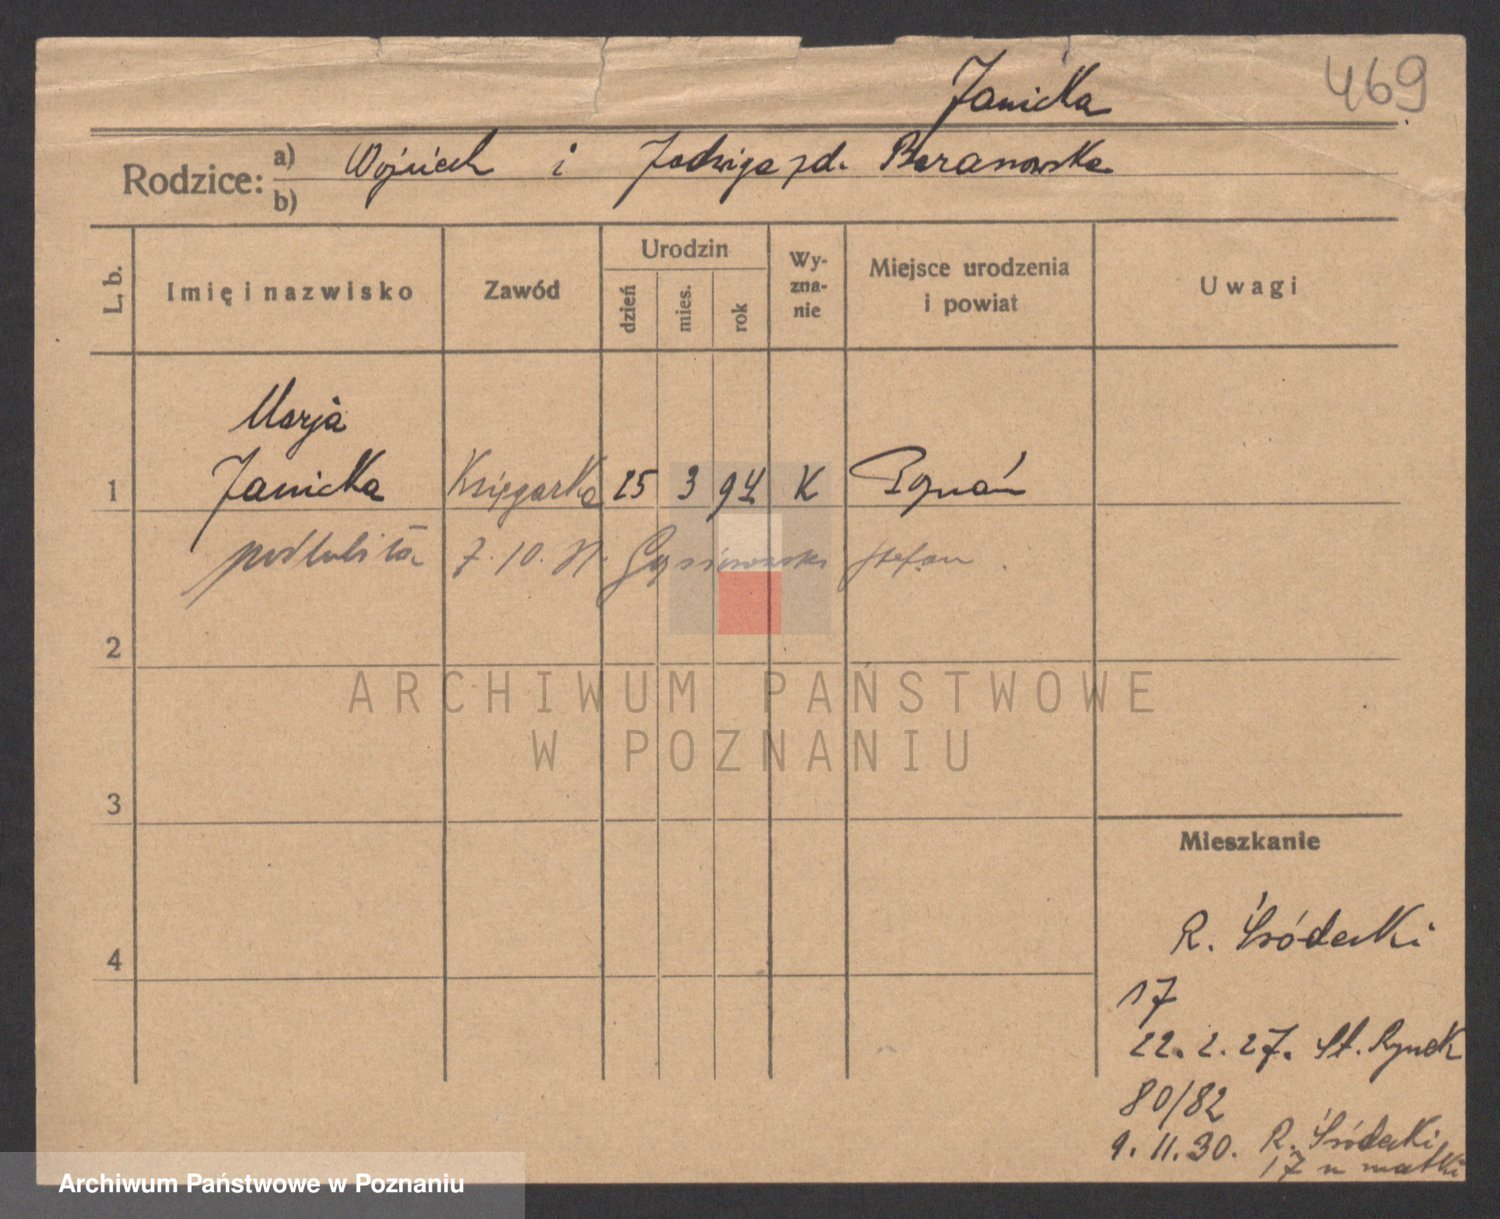 469
Janicka
Rodzice: a) Wojciech i Jadwiga zd. Baranowska
b)
L. b. Imię i nazwisko Zawód Urodzin dzień mies. rok Wy-zna-nie Miejsce urodzenia i powiat Uwagi
Marja
1 Janicka Księgarka 25 3 94 K Poznań
poślubiła 7. 10. Stefan
2
ARCHIWUM PAŃSTWOWE
W POZNANIU
3
Mieszkanie
R. Śródecki
4
17
22. 2. 27. St. Rynek
80/82
9. 11. 30. R. Śródecki
17 u matki
Archiwum Państwowe w Poznaniu